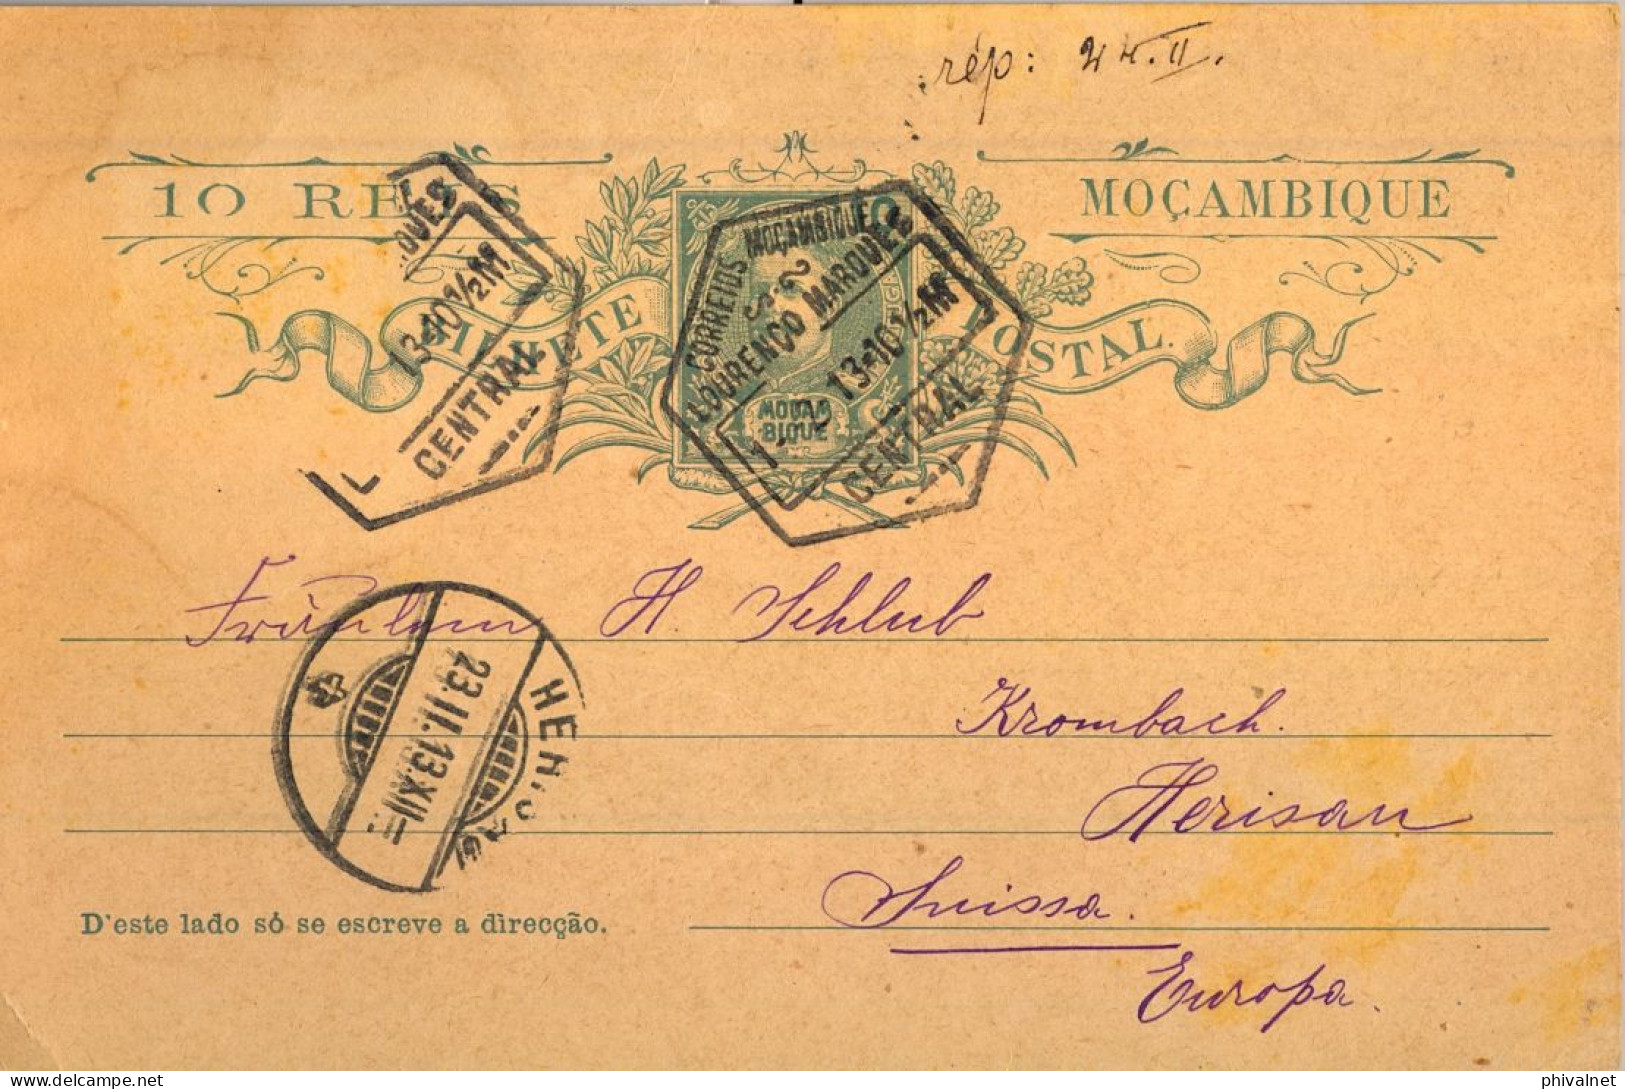 rép: 24.II.
10 REIS
MOÇAMBIQUE
BILHETE POSTAL.
CORREIOS MOÇAMBIQUE
LOURENÇO MARQUES
1 - 2 13-10½M
CENTRAL
MOÇAM
BIQUE
QUES
13-10½M
CENTRAL
Fräulein H. Schlub
Krombach.
Herisau
Suissa.
Europa.
HERISAU
23.II.13.XII
D'este lado só se escreve a direcção.
phivalnet